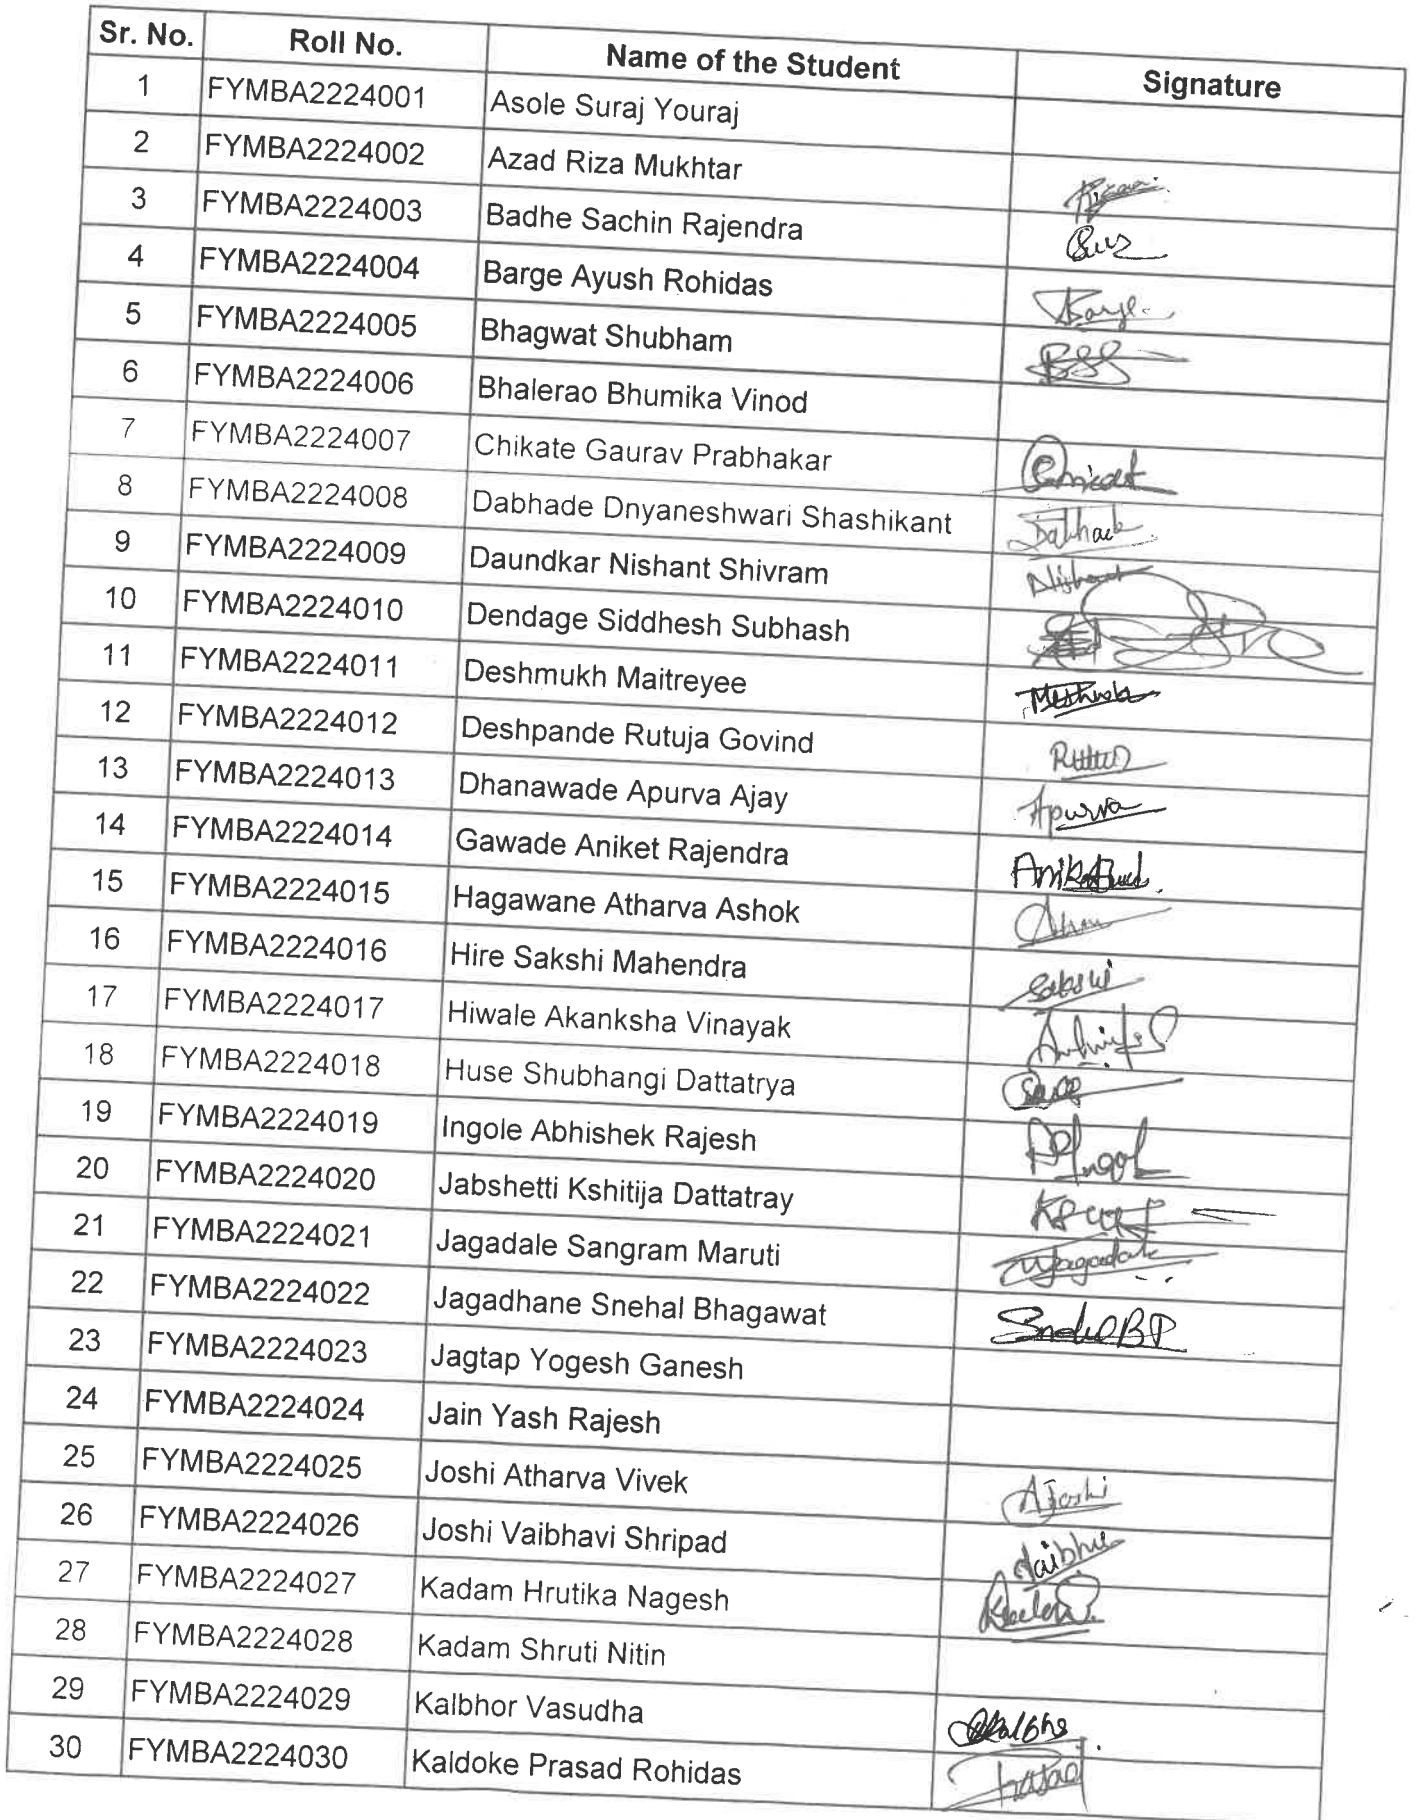 Sr. No. Roll No. Name of the Student Signature
1 FYMBA2224001 Asole Suraj Youraj
2 FYMBA2224002 Azad Riza Mukhtar
3 FYMBA2224003 Badhe Sachin Rajendra
4 FYMBA2224004 Barge Ayush Rohidas Barge
5 FYMBA2224005 Bhagwat Shubham
6 FYMBA2224006 Bhalerao Bhumika Vinod
7 FYMBA2224007 Chikate Gaurav Prabhakar
8 FYMBA2224008 Dabhade Dnyaneshwari Shashikant
9 FYMBA2224009 Daundkar Nishant Shivram
10 FYMBA2224010 Dendage Siddhesh Subhash
11 FYMBA2224011 Deshmukh Maitreyee
12 FYMBA2224012 Deshpande Rutuja Govind
13 FYMBA2224013 Dhanawade Apurva Ajay Apurva
14 FYMBA2224014 Gawade Aniket Rajendra
15 FYMBA2224015 Hagawane Atharva Ashok
16 FYMBA2224016 Hire Sakshi Mahendra Sakshi
17 FYMBA2224017 Hiwale Akanksha Vinayak
18 FYMBA2224018 Huse Shubhangi Dattatrya
19 FYMBA2224019 Ingole Abhishek Rajesh
20 FYMBA2224020 Jabshetti Kshitija Dattatray
21 FYMBA2224021 Jagadale Sangram Maruti
22 FYMBA2224022 Jagadhane Snehal Bhagawat
23 FYMBA2224023 Jagtap Yogesh Ganesh
24 FYMBA2224024 Jain Yash Rajesh
25 FYMBA2224025 Joshi Atharva Vivek AJoshi
26 FYMBA2224026 Joshi Vaibhavi Shripad
27 FYMBA2224027 Kadam Hrutika Nagesh
28 FYMBA2224028 Kadam Shruti Nitin
29 FYMBA2224029 Kalbhor Vasudha
30 FYMBA2224030 Kaldoke Prasad Rohidas Prasad